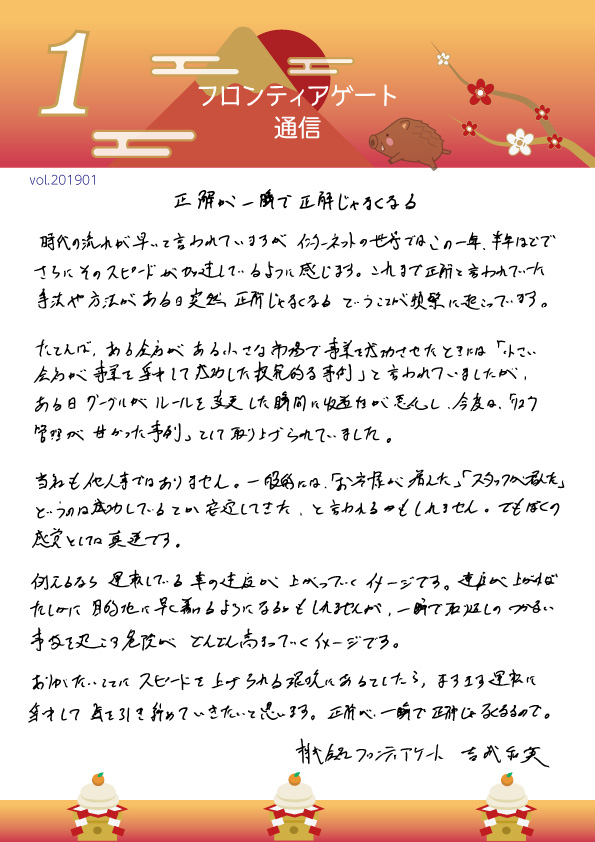 1
フロンティアゲート
通信
vol.201901
正解が一瞬で正解じゃなくなる
時代の流れが早いと言われていますが インターネットの世界ではこの一年、半年ほどで
さらにそのスピードが加速しているように感じます。これまで正解と言われていた
手法や方法が ある日突然、正解じゃなくなる ということが頻繁に起こっています。
たとえば、ある会社が ある小さな市場で事業を成功させたときには「小さい
会社が 事業を集中して成功した模範的な事例」と言われていましたが、
ある日 グーグルが ルールを変更した瞬間に収益性が悪化し、今度は、「リスク
管理が 甘かった事例」として取り上げられていました。
当社も他人事ではありません。一般的には、「お客様が増えた」「スタッフが増えた」
というのは成功しているとか 安定してきた、と言われるかもしれません。でもぼくの
感覚としては真逆です。
例えるなら 運転している 車の速度が 上がっていく イメージです。速度が上がれば
たしかに 目的地に早く着けるようになるかもしれませんが、一瞬で取返しの つかない
事故を起こす危険が どんどん高まっていくイメージです。
ありがたいことに スピードを上げられる環境にあるとしたら、ますます運転に
集中して 気を引き締めていきたいと思います。正解が、一瞬で正解じゃなくなるので。
株式会社フロンティアゲート